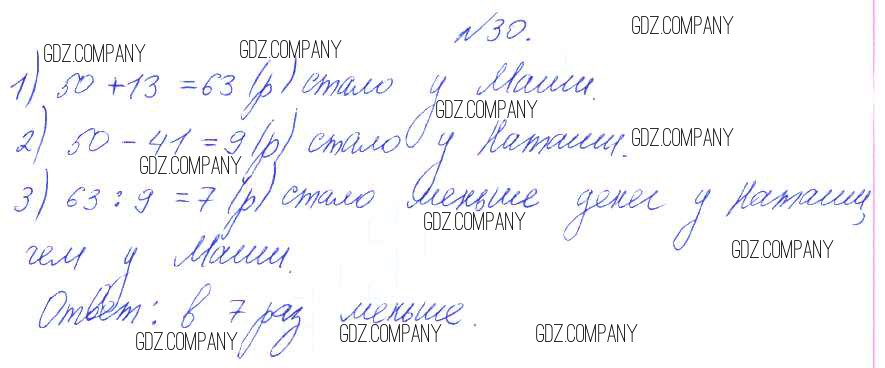 №30.
GDZ.COMPANY GDZ.COMPANY GDZ.COMPANY
1) 50 + 13 = 63 (р) стало у Маши.
GDZ.COMPANY
2) 50 - 41 = 9 (р) стало у Наташи. GDZ.COMPANY
GDZ.COMPANY
3) 63 : 9 = 7 (р) стало меньше денег у Наташи,
GDZ.COMPANY
чем у Маши. GDZ.COMPANY
Ответ: в 7 раз меньше.
GDZ.COMPANY GDZ.COMPANY GDZ.COMPANY